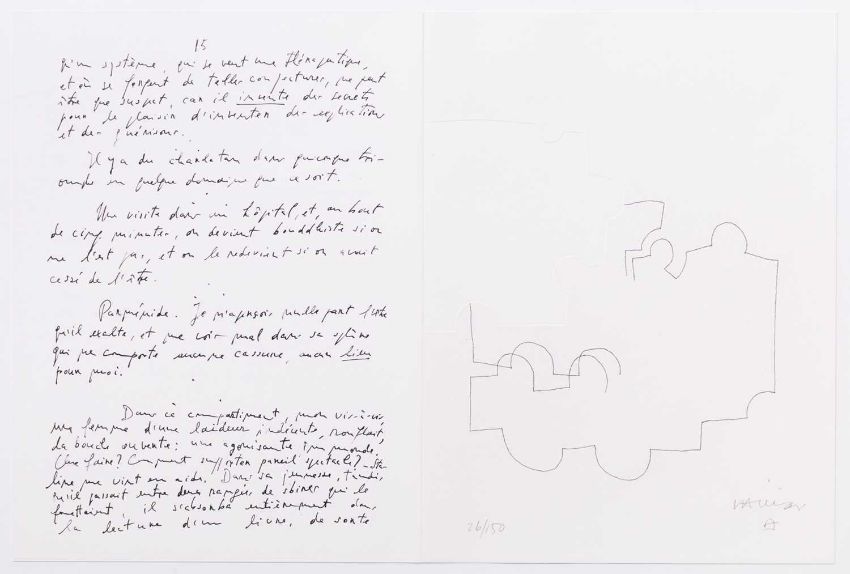 15
qu'un système, qui se veut une thérapeutique,
et où se forgent de telles conjectures, ne peut
être que suspect, car il invente des secrets
pour le plaisir d'inventer des explications
et des guérisons.
Il y a du charlatan dans quiconque tri-
omphe en quelque domaine que ce soit.
Une visite dans un hôpital, et, au bout
de cinq minutes, on devient bouddhiste si on
ne l'est pas, et on le redevient si on avait
cessé de l'être.
Parménide. Je n'aperçois nulle part l'être
qu'il exalte, et me vois mal dans sa sphère
qui ne comporte aucune cassure, aucun lieu
pour moi.
Dans ce compartiment, mon vis-à-vis,
une femme d'une laideur indécente, ronflait,
la bouche ouverte: une agonisante immonde.
Que faire? Comment supporter pareil spectacle? - Sta-
line me vint en aide. Dans sa jeunesse, tandis
qu'il passait entre deux rangées de sbires qui le
fouettaient, il s'absorba entièrement dans
la lecture d'un livre, de sorte
26/150